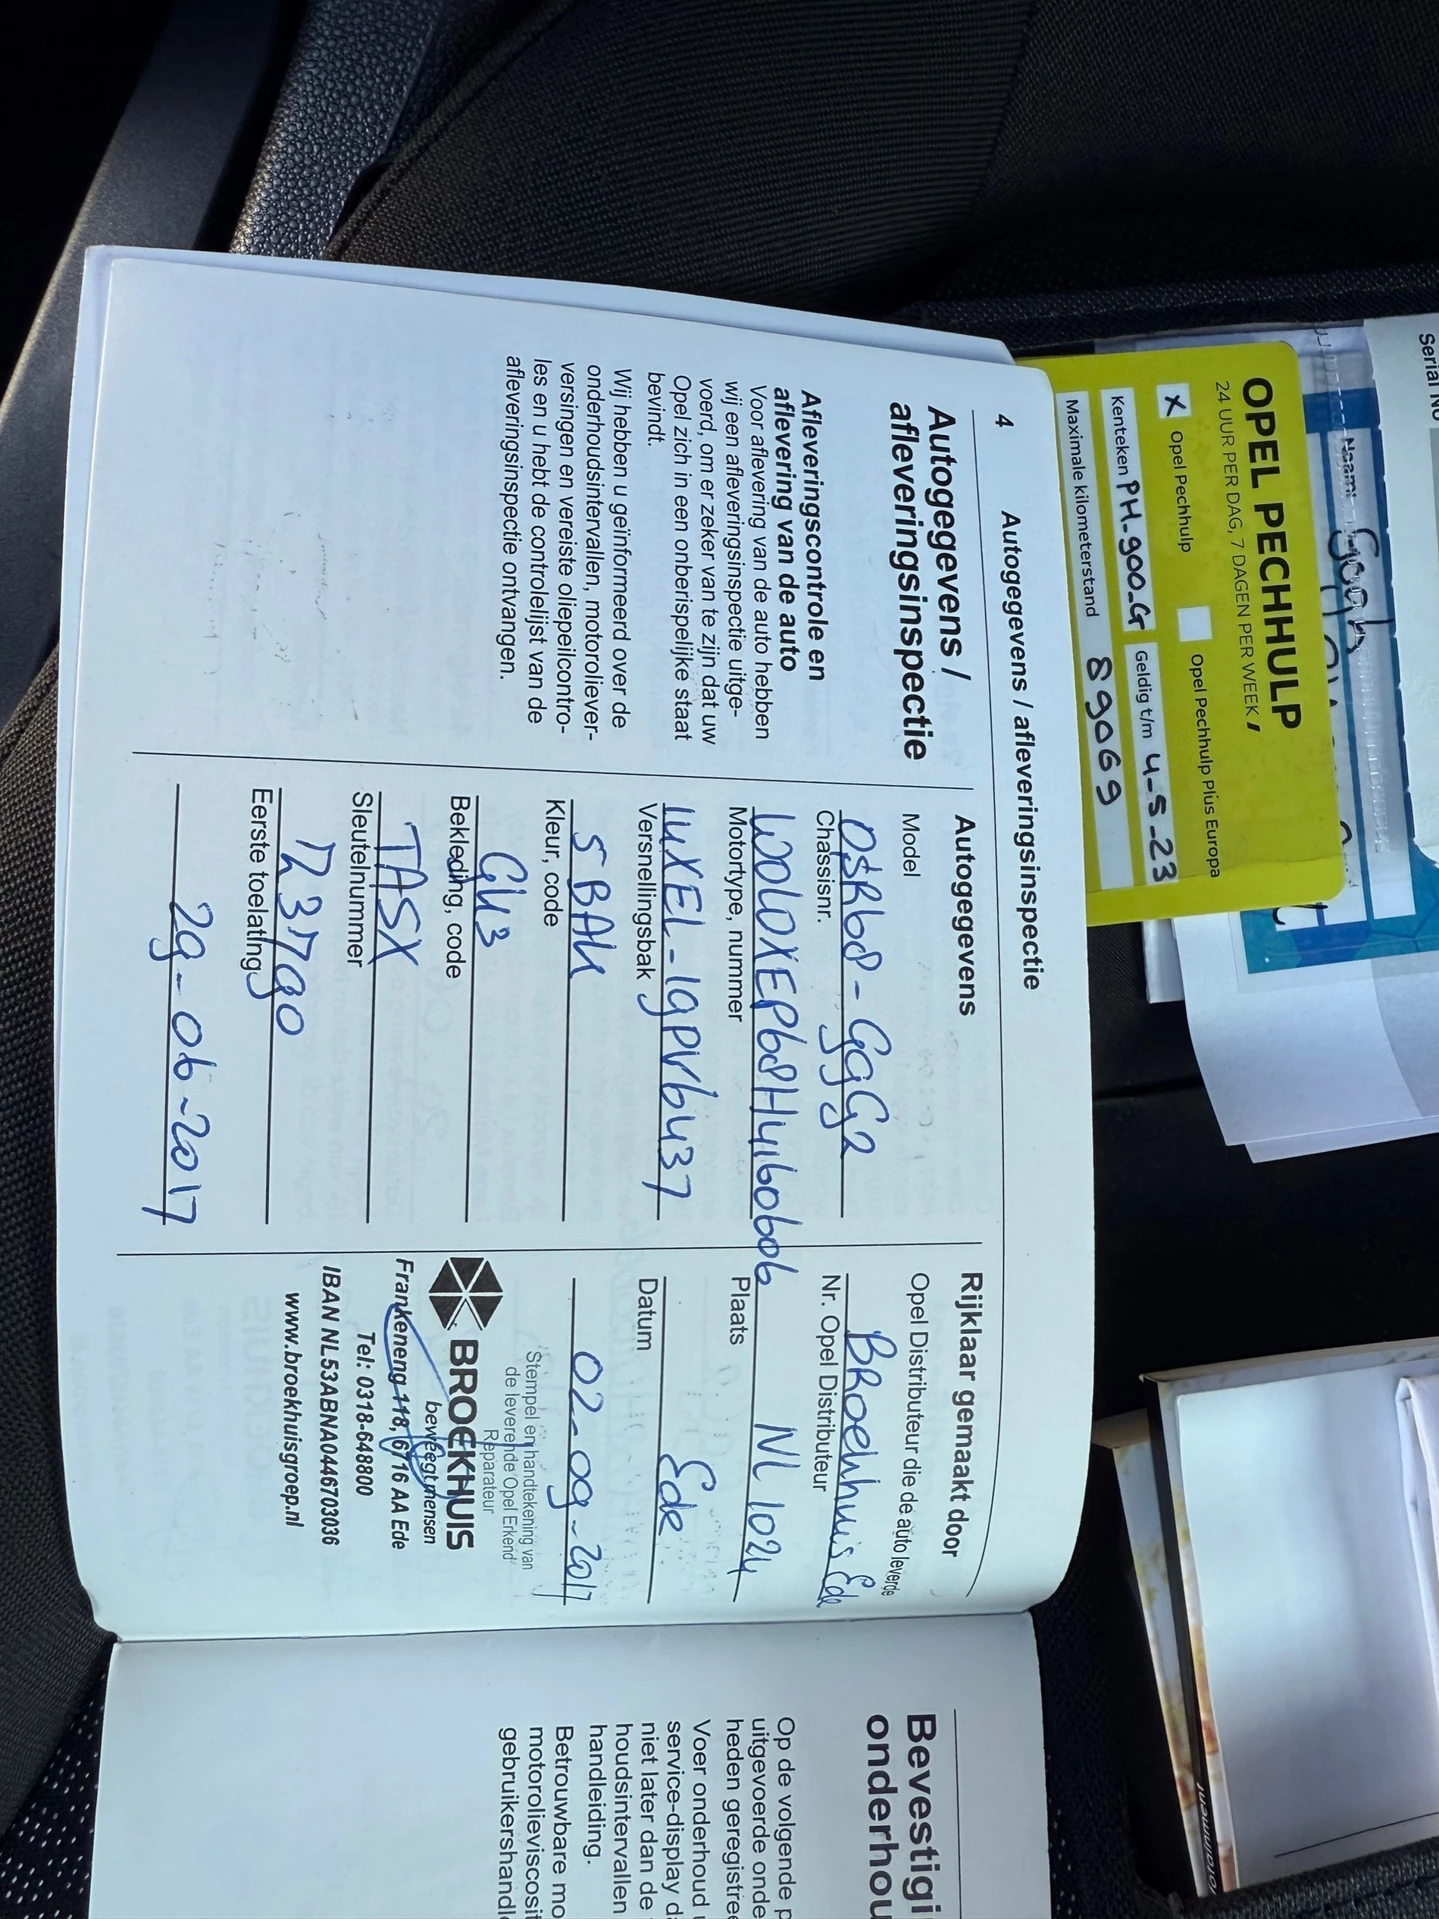 Serial No
Naam:
OPEL PECHHULP
24 UUR PER DAG, 7 DAGEN PER WEEK
X Opel Pechhulp
Opel Pechhulp Plus Europa
Kenteken PH-900-G
Geldig t/m 4-5-23
Maximale kilometerstand 89069
4 Autogegevens / afleveringsinspectie
Autogegevens /
afleveringsinspectie
Afleveringscontrole en
aflevering van de auto
Voor aflevering van de auto hebben
wij een afleveringsinspectie uitge-
voerd, om er zeker van te zijn dat uw
Opel zich in een onberispelijke staat
bevindt.
Wij hebben u geïnformeerd over de
onderhoudsintervallen, motoroliever-
versingen en vereiste oliepeilcontro-
les en u hebt de controlelijst van de
afleveringsinspectie ontvangen.
Autogegevens
Model
0SRb68-GGG2
Chassisnr.
W0L0XEP68H4160606
Motortype, nummer
Versnellingsbak
5BAK
Kleur, code
GU3
Bekleding, code
TASX
Sleutelnummer
Eerste toelating
29-06-2017
Rijklaar gemaakt door
Opel Distributeur die de auto leverde
BRoekhuis Ede
Nr. Opel Distributeur
NL 1024
Plaats
Ede
Datum
02-09-2017
Stempel en handtekening van
de leverende Opel Erkend
Reparateur
BROEKHUIS
beweegt mensen
Frankeneng 118, 6716 AA Ede
Tel: 0318-648800
IBAN NL53ABNA0446703036
www.broekhuisgroep.nl
Bevestigi
onderhou
Op de volgende p
uitgevoerde onde
heden geregistree
Voer onderhoud
service-display d
niet later dan de
houdsintervallen
handleiding.
Betrouwbare mo
motorolieviscosit
gebruikershandl